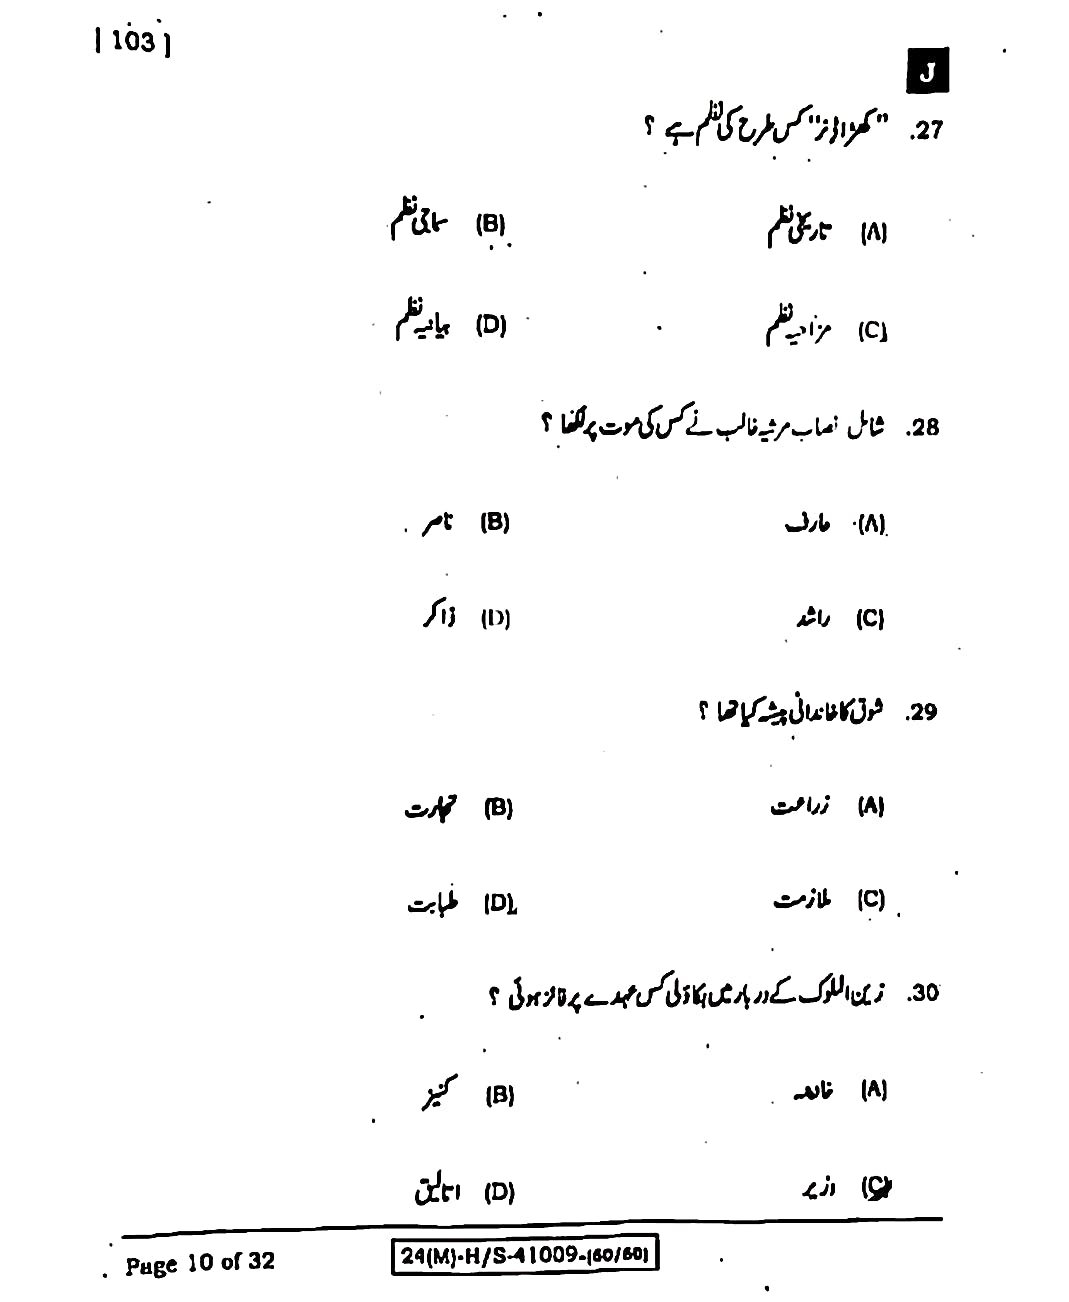 [ 103 ]
J
27. "کھڑا ڈنر" کس طرح کی نظم ہے ؟
(A) تاریخی نظم (B) سماجی نظم
(C) مزاحیہ نظم (D) بیانیہ نظم
28. شامل نصاب مرثیہ غالب نے کس کی موت پر لکھا ؟
(A) عارف (B) ناصر
(C) راشد (D) ذاکر
29. شوق کا خاندانی پیشہ کیا تھا ؟
(A) زراعت (B) تجارت
(C) ملازمت (D) طبابت
30. زین الملوک کے دربار میں بکاؤلی کس عہدے پر فائز ہوئی ؟
(A) (B) کنیز
(C) وزیر (D) اتالیق
Page 10 of 32
24(M)-H/S-41009-(60/60)